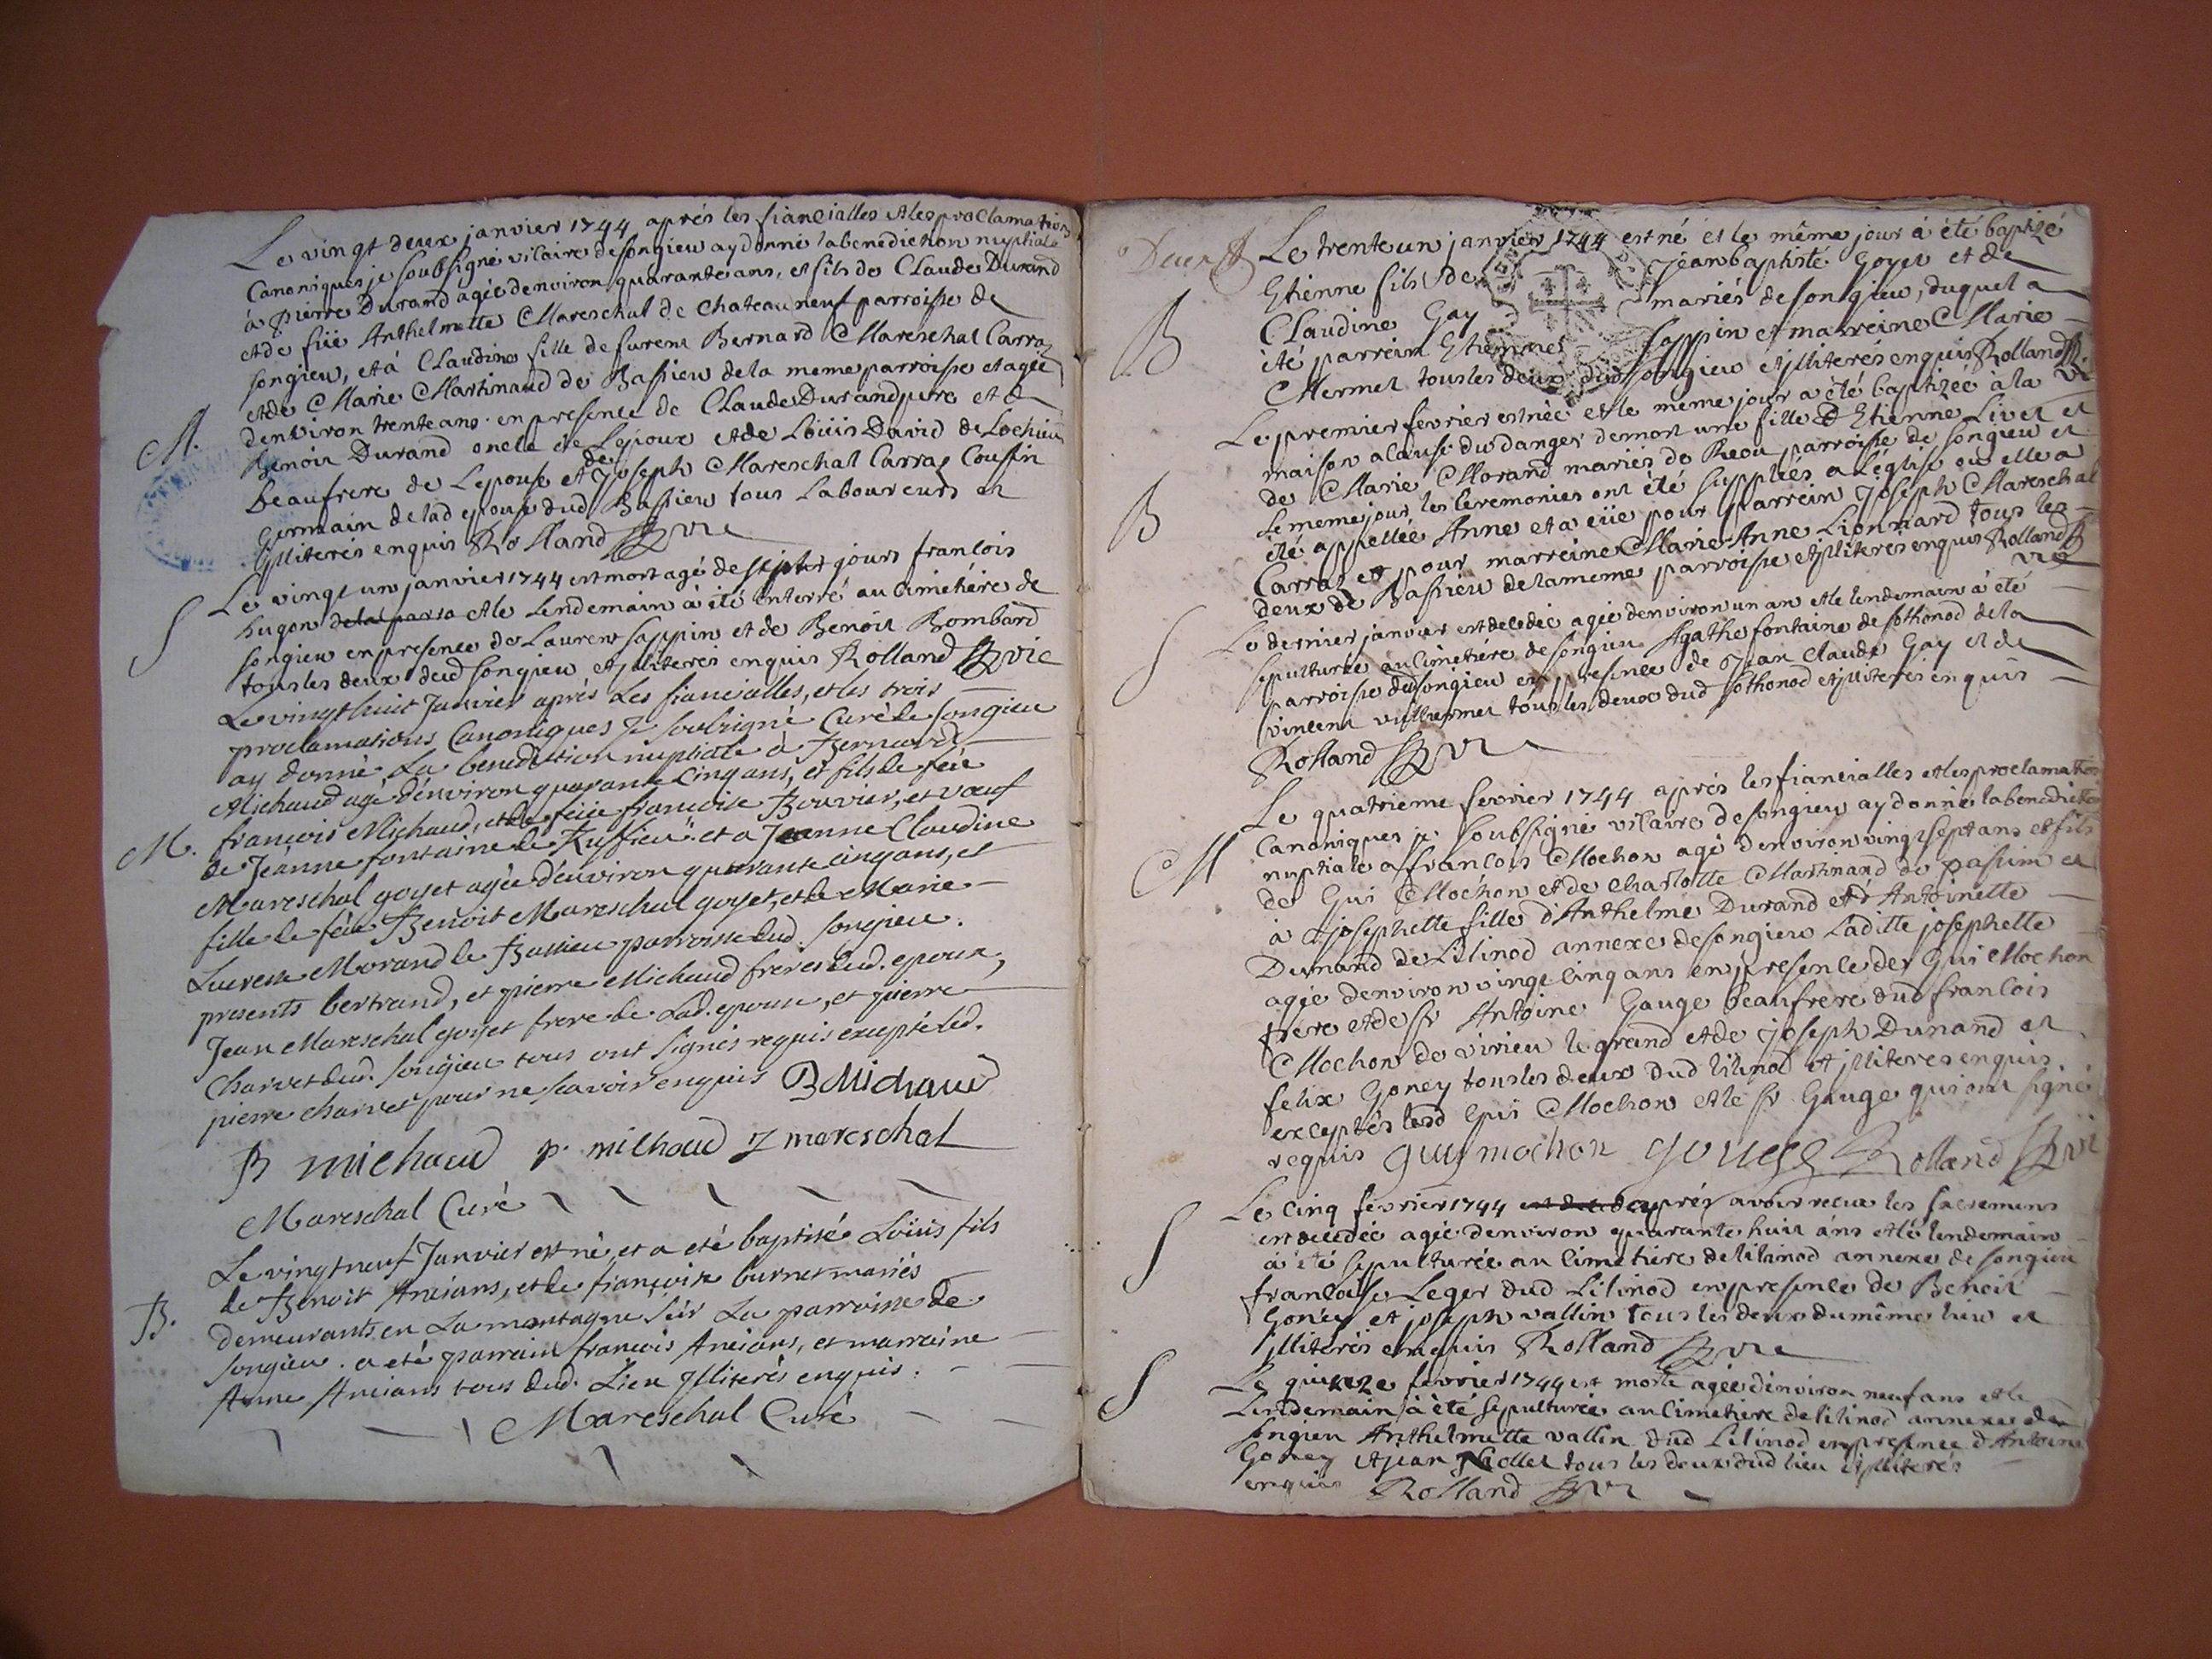 Le vingt deux janvier 1744 aprés les fiancialles et les proclamations
Canoniques je soubsigné vicaire de songieu ay donné la benediction nuptiale
à pierre Durand agée denviron quarante ans, et fils de Claude Durand
et de füe Anthelmette Mareschal de chateauneuf parroisse de
songieu, et à Claudine fille de furent Bernard Mareschal Carraz
et de Marie Martinand de Bassieu de la meme parroisse et agée
M.
denviron trente ans. en presence de Claude Durand pere et de
Benoit Durand oncle de Lepoux et de Loüis David de Lochieu
beaufrere de Lepouse et de Joseph Mareschal Carraz Coussin
Germain de lad epouse dud Bassieu tous Laboureurs et
Jlliterés enquis Rolland vic
S
Le vingt un janvier 1744 est mort agé de sept jours francois
hugon de la paroo et le Lendemain à été enterré au Cimetiére de
songieu en presence de Laurent sappin et de Benoit Bombard
tous les deux dud songieu et jlliterés enquis Rolland vic
Le vingt huit Janvier aprés Les fiancialles, et les trois
proclamations Canoniques Je soubsigné Curé de songieu
ay donné La benediction nuptiale à Bernard
Michaud agé d'environ quarante cinq ans, et fils de feüe
M. françois Michaud, et de feüe françoise Bouvier, et vœuf
de Jeanne fontaine de Ruffieu. et a Jeanne Claudine
Mareschal goyet agée d'environ quarante cinq ans, et
fille de feüe Benoit Mareschal goyet, et de Marie
Lucresse Morand de Bassieu parroisse dud. songieu.
presents bertrand, et pierre Michaud freres dud. epoux,
Jean Mareschal goyet frere de Lad. epouse, et pierre
Charvet dud. songieu tous ont signés requis excepté led.
pierre charvet pour ne scavoir enquis BMichaud
B michaud p. michaud J mareschal
Mareschal Curé
Le vingt neuf Janvier est né, et a eté baptisé Loüis fils
B. de Benoit Ancians, et de françoise burnet mariés
demeurants en La montagne sur La parroisse de
songieu. a eté parrain françois Ancians, et marraine
Anne Ancians tous dud. Lieu Jlliterés enquis.
Mareschal Curé
Le trente un janvier 1744 est né et le même jour à été baptizé
Etienne fils de Jean baptiste Goyet et de
B
Claudine Gay mariés de songieu, duquel a
été parrein Etienne sappin et marreine Marie
Mermet tous les deux dud songieu et jlliterés enquis Rolland
Le premier fevrier est née et le meme jour a été baptizée à la
maison a cause du danger de mort une fille d'Etienne Livet et
de Marie Morand mariés de Reou parroisse de songieu et
B
le meme jour les Ceremonies ont été suppleés a l'église ou elle a
été appellée Anne et a eüe pour parrein Joseph Mareschal
Carraz et pour marreine Marie Anne Lionnard tous les
deux de Bassieu de la meme parroisse et jlliterés enquis Rolland vic
S
Le dernier janvier est decedée agée denviron un an et le lendemain à été
sepulturée au Cimetiére de songieu Agathe fontaine de sothonod de la
parroisse dud songieu en presence de Jean Claude Gay et de
vincent vulliermet tous les deux dud sothonod et jlliterés enquis
Rolland vic
Le quatrieme fevrier 1744 aprés les fiancialles et les proclamations
Canoniques je soubsigné vicaire de songieu ay donné la benediction
M
nuptiale a francois Mochon agé denviron vingt sept ans et fils
de Gui Mochon et de charlotte Martinand de passin et
à josephette fille d'Anthelme Durand et d'Antoinette
Dumand de Lilinod annexe de songieu Laditte josephette
agée denviron vingt cinq ans en presence de Gui Mochon
frere et de sr Antoine Gauge beaufrere dud francois
Mochon de virieu le grand et de joseph Dunand et
felix Goney tous les deux dud lilinod et jlliterés enquis
exceptés led Gui Mochon et le sr Gauge qui ont signé
requis guy mochon gouge Rolland vic
S
Le cinq fevrier 1744 aprés avoir recue les sacremens
est decedée agée denviron quarante huit ans et le lendemain
a été sepulturée au Cimetiere de lilinod annexe de songieu
francoise Leger dud Lilinod en presence de Benoit
Goney et joseph vallin tous les deux du même lieu et
jlliterés enquis Rolland vic
S
Le quinze fevrier 1744 est morte agée d'environ neuf ans et le
Lendemain à été sepulturée au Cimetiere de lilinod annexe de
songieu Anthelmette vallin dud Lilinod en presence d'Antoine
Goney et jean Niollet tous les deux dud lieu et jlliterés
enquis Rolland vic